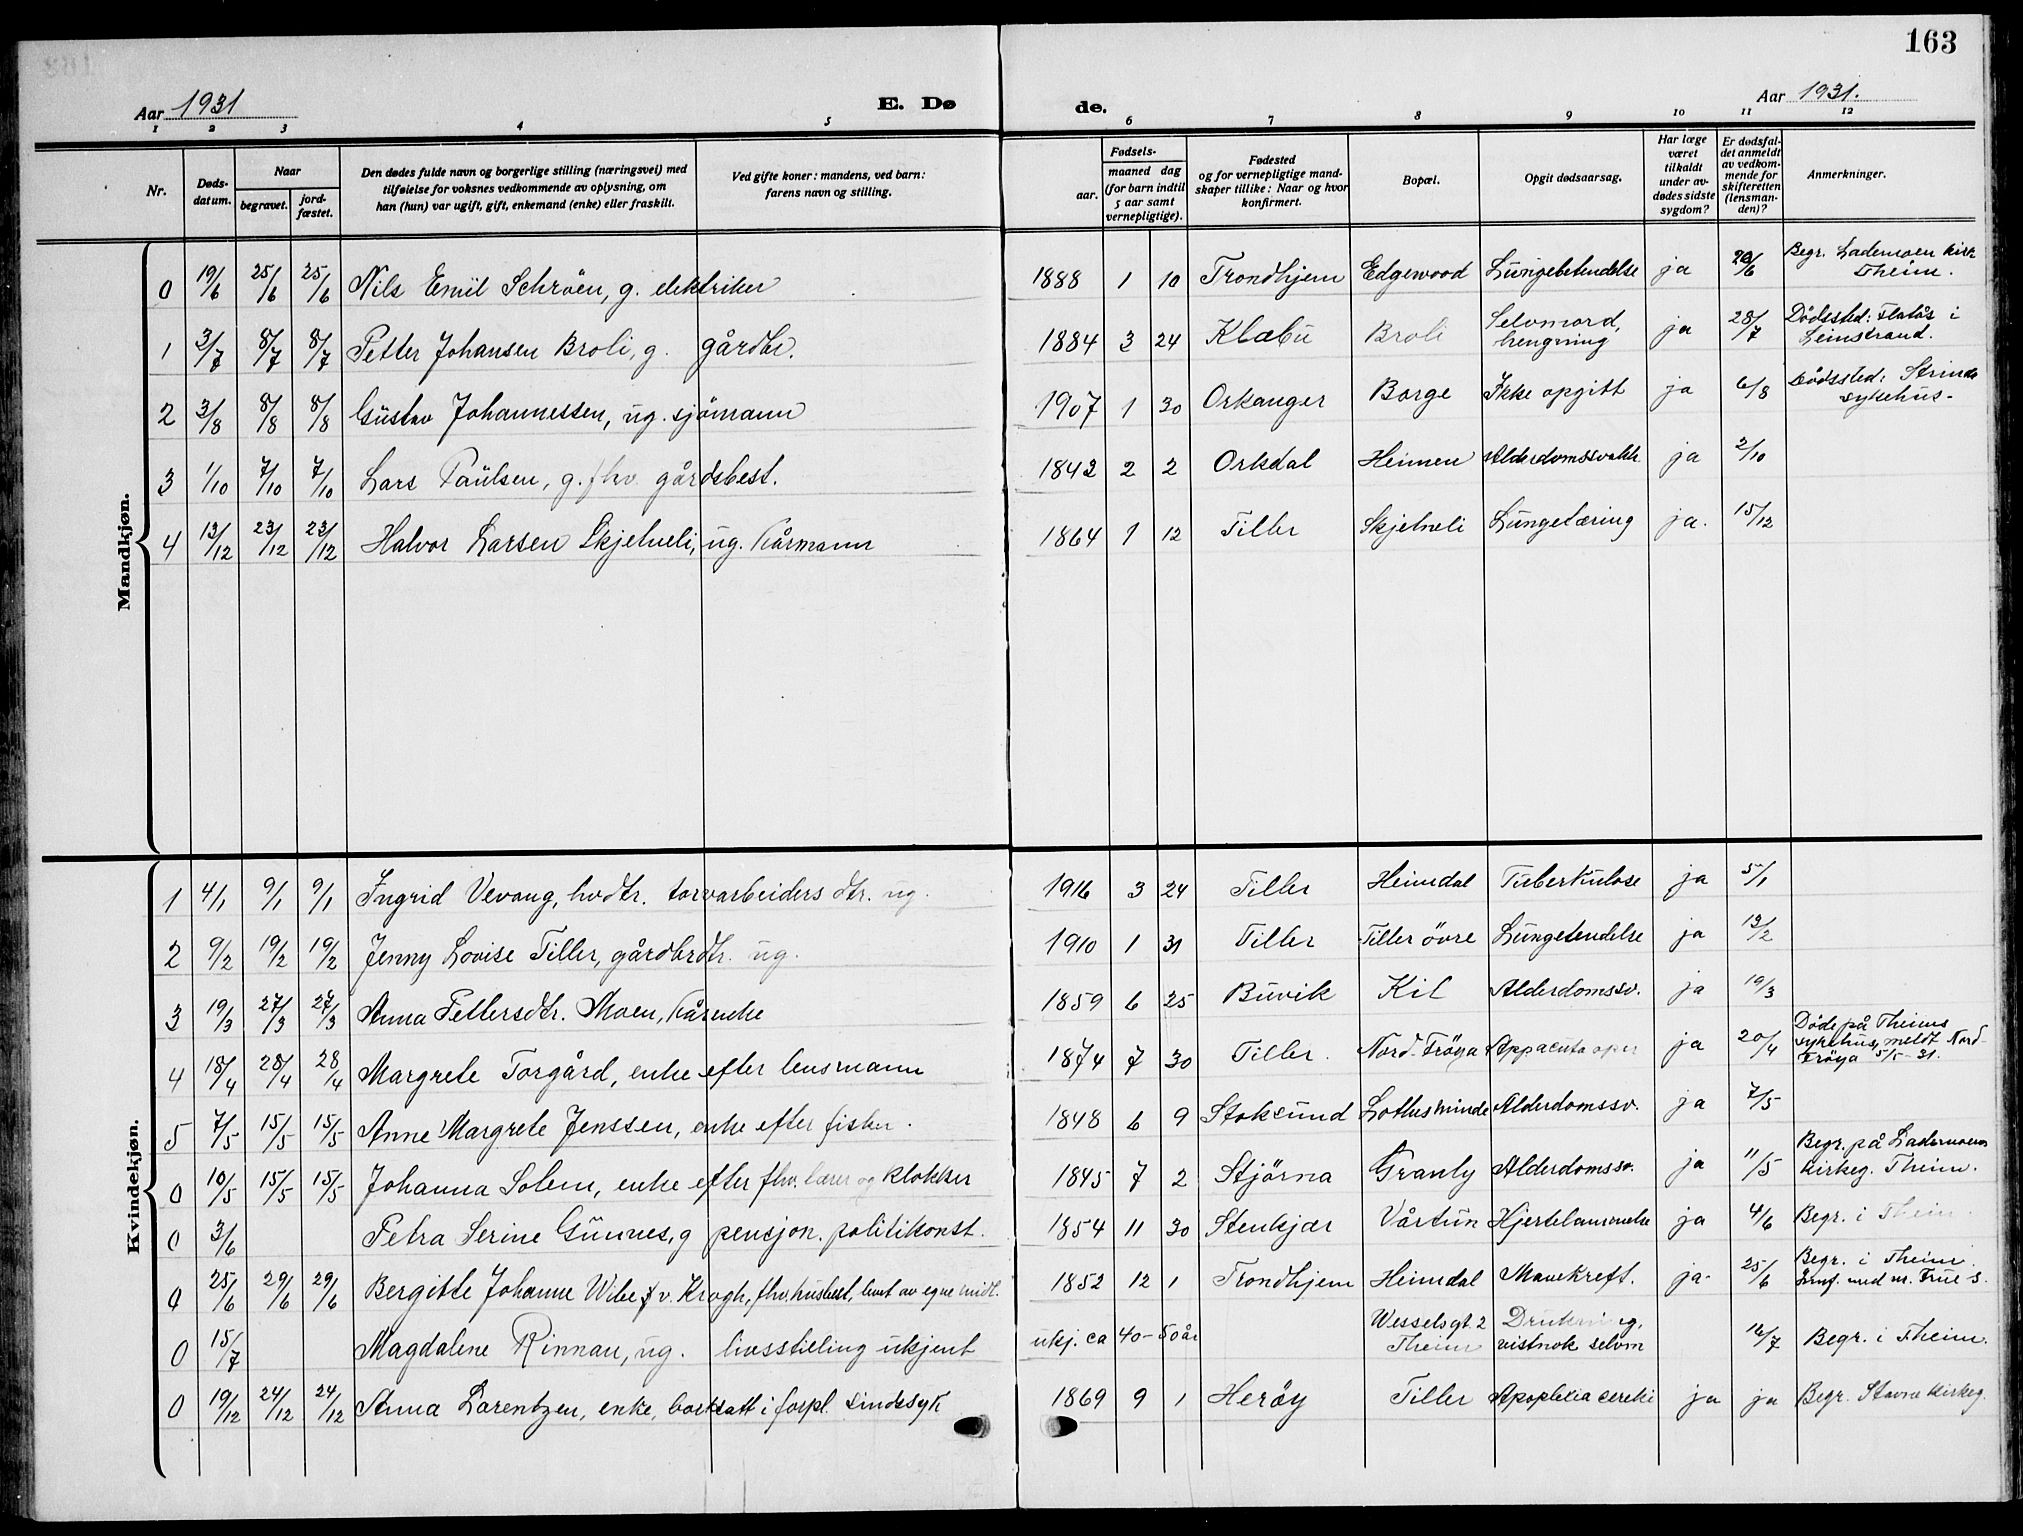 163
Aar 1931
E. Dø
de.
Aar 1931.
1 2 3 4 5 6 7 8 9 10 11 12
Nr.
Døds-
datum.
Naar
begravet.
jord-
fæstet.
Den dødes fulde navn og borgerlige stilling (næringsvei) med
tilføielse for voksnes vedkommende av oplysning, om
han (hun) var ugift, gift, enkemand (enke) eller fraskilt.
Ved gifte koner: mandens, ved barn:
farens navn og stilling.
Fødsels-
aar.
maaned dag
(for barn indtil
5 aar samt
vernepligtige).
Fødested
og for vernepligtige mand-
skaper tillike: Naar og hvor
konfirmert.
Bopæl.
Opgit dødsaarsag.
Har læge
været
tilkaldt
under av-
dødes sidste
sygdom?
Er dødsfal-
det anmeldt
av vedkom-
mende for
skifteretten
(lensman-
den)?
Anmerkninger.
Mandkjøn.
0 19/6 25/6 25/6 Nils Emil Schröen, g. elektriker 1888 1 10 Trondhjem Edgewood Lungebetendelse ja 20/6 Begr. Lademoen kirk
Theim.
1 3/7 8/7 8/7 Petter Johansen Broli, g. gårdbr. 1884 3 24 Klæbu Broli Selvmord,
hengning ja 28/7 Dödssted: Flatås i
Leinstrand.
2 3/8 8/8 8/8 Gustav Johannessen, ug. sjömann 1907 1 30 Orkanger Borge Ikke opgitt ja 6/8 Dödssted: Strinda
sykehus-
3 1/10 7/10 7/10 Lars Paulsen, g. fhv. gårdsbest. 1842 2 2 Orkdal Heimen Alderdomssvakh. ja 2/10
4 13/12 23/12 23/12 Halvor Larsen Skjelneli, ug. Kårmann 1864 1 12 Tiller Skjelneli Lungetæring ja. 15/12
Kvindekjøn.
1 4/1 9/1 9/1 Ingrid Vevang, hvdtr. torvarbeiders dtr. ug. 1916 3 24 Tiller Heimdal Tuberkulose ja 5/1
2 9/2 19/2 19/2 Jenny Lovise Tiller, gårdbrdtr. ug. 1910 1 31 Tiller Tiller övre Lungetendelse ja 12/2
3 19/3 27/3 27/3 Anna Pettersdtr. Moen, Kårenke 1859 6 25 Buvik Kil Alderdomssv. ja 19/3
4 18/4 28/4 28/4 Margrete Torgård, enke efter lensmann 1874 7 30 Tiller. Nord-Fröya App acuta oper ja 20/4 Döde på Theims
sykehus, meldt Nord-
Fröya 5/5-31.
5 7/5 15/5 15/5 Anne Margrete Jenssen, enke efter fisker. 1848 6 9 Stoksund Lottesminde Alderdomssv. ja 7/5
0 10/5 15/5 15/5 Johanna Solem, enke efter fhv. lærer og klokker 1845 7 2 Stjörna Granly Alderdomssv. ja 11/5 Begr. på Lademoens
kirkeg. Theim.
0 3/6 Petra Serine Gunnes, g pensjon. politikonst. 1854 11 30 Stenkjær Vårtun Hjertelammelse ja 4/6 Begr. i Theim.
0 25/6 29/6 29/6 Bergitte Johanne Wibe f v. Krogh, fhv. husbest, levet av egne midl. 1852 12 1 Trondhjem Heimdal Mavekreft. ja- 25/6 Begr. i Theim.
0 15/7 Magdalene Rinnan, ug. livsstilling ukjent ukj. ca 40-50 år Wesselsgt. 2
Theim Drukning,
vistnok selvm 16/7 Begr. i Theim.
0 19/12 24/12 24/12 Anna Lorentzen, enke, bortsatt i forpl. sindssyk 1869 9 1 Heröy Tiller Apoplexia cerebri ja ja Begr. Stavne kirkeg.